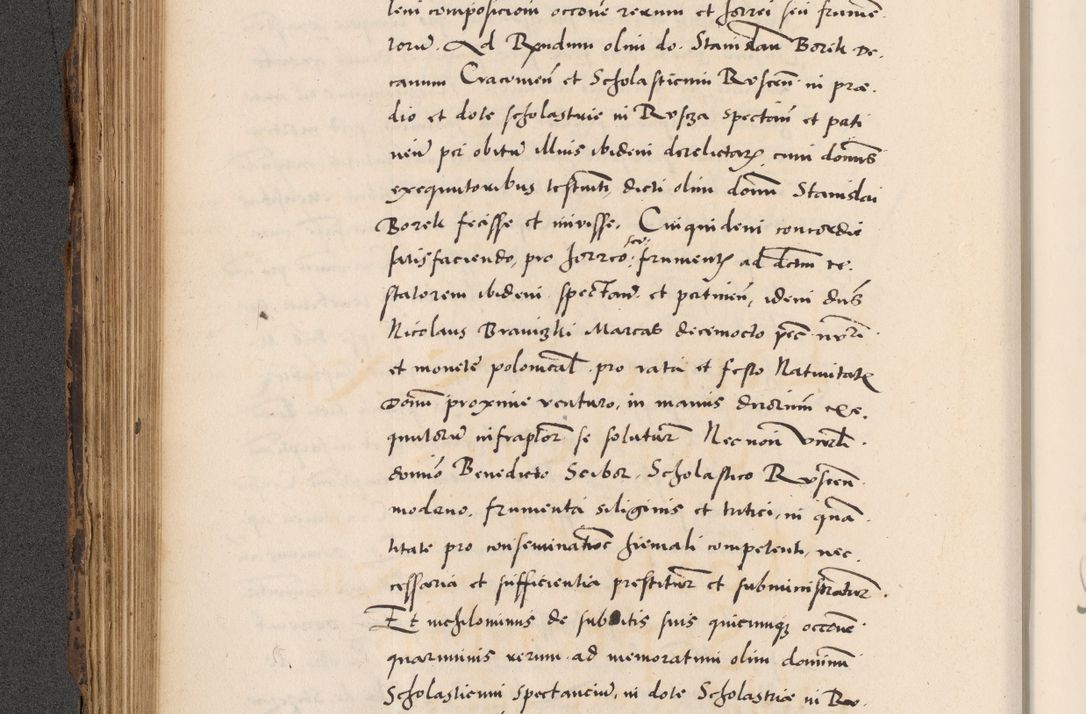 leni composicioni occone rerum et horrei seu frumen
torum. Ad Rndum olim do. Stanislaum Borek De.
canum Cracovien et Scholasticum Ruscen in præ.
dio et dote scholastrie in Rusza spectan et perti
nen per obitum illius ibidem derelictarum cum dominis
exequutoribus testamti dicti olim domini Stanislai
Borek fecisse et inivisse. Cuiquidem concordie
satisfaciendo, pro horreo, seu frumentis ad dictum te.
statorem ibidem spectan. et pertinen, idem dnus
Nicolaus Branizki Marcas decemocto pec. nri
et monete polonicalis pro rata et festo Nativitatis
Domini proxime venturo, in manus dnorum exe.
quutorum infraptor se soluturum Necnon Venerabili.
domino Benedicto Scibor. Scholastico Ruscen
moderno. frumenta siliginis et tritici in quan.
titate pro conseminatione hiemali competenti, nec
cessaria et sufficientia prestiturum et subministraturum.
Et nihilominus de subditis suis quicumque occone
quarumvis rerum ad memoratum olim dominum
Scholasticum spectancium, in dote Scholastrie in Ru.